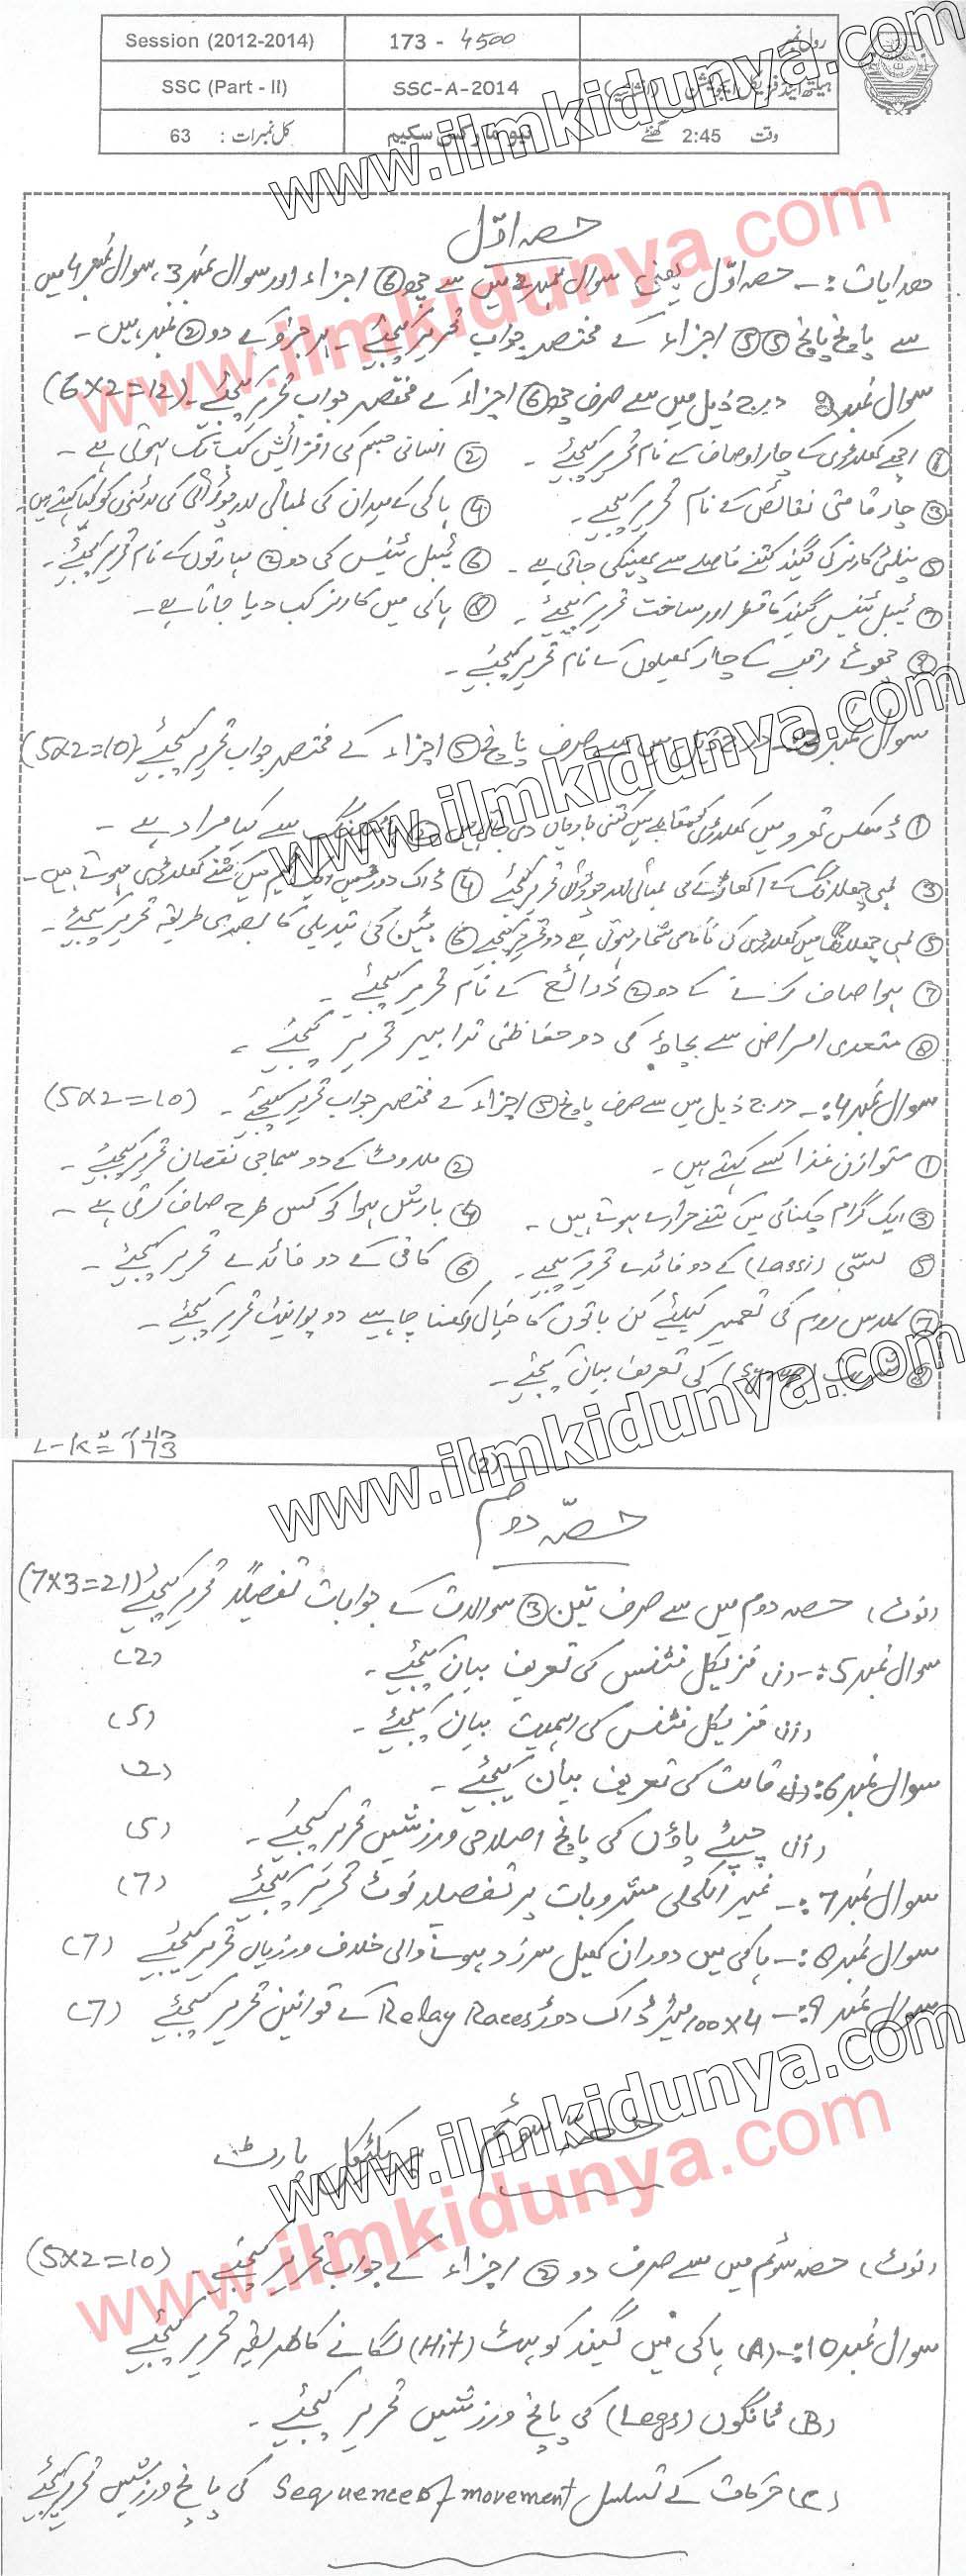 Session (2012-2014) 173 - 4500 رول نمبر
SSC (Part - II) SSC-A-2014 ہیلتھ اینڈ فزیکل ایجوکیشن
کل نمبرات : 63 نیو مارکس سکیم وقت 2:45 گھنٹے
www.ilmkidunya.com
حصہ اوّل
ھدایات :- حصہ اوّل یعنی سوال نمبر 2 میں سے چھ 6 اجزاء اور سوال نمبر 3، سوال نمبر 4 میں
سے پانچ پانچ 5 5 اجزاء کے مختصر جواب تحریر کیجئے ۔ ہر جزو کے دو 2 نمبر ہیں ۔
سوال نمبر 2 درج ذیل میں سے صرف چھ 6 اجزاء کے مختصر جواب تحریر کیجئے ۔ (6×2=12)
1 اچھے کھلاڑی کے چار اوصاف کے نام تحریر کیجئے ۔ 2 انسانی جسم کی افزائش کب تک ہوتی ہے ۔
3 چار قامتی نقائص کے نام تحریر کیجئے ۔ 4 ہاکی کے میدان کی لمبائی اور چوڑائی کی لائنوں کو کیا کہتے ہیں ۔
5 پنلٹی کارنر کی گیند کتنے فاصلے سے پھینکی جاتی ہے ۔ 6 ٹیبل ٹینس کی دو 2 مہارتوں کے نام تحریر کیجئے ۔
7 ٹیبل ٹینس گیند کا قطر اور ساخت تحریر کیجئے ۔ 8 ہاکی میں کارنر کب دیا جاتا ہے ۔
9 چھوٹے رقبے کے چار کھیلوں کے نام تحریر کیجئے ۔
سوال نمبر 3 درج ذیل میں سے صرف پانچ 5 اجزاء کے مختصر جواب تحریر کیجئے (5×2=10)
1 ڈسکس تھرو میں کھلاڑی کو مقابلے میں کتنی باریاں دی جاتی ہیں 2 سے کیا مراد ہے ۔
3 لمبی چھلانگ کے اکھاڑے کی لمبائی اور چوڑائی تحریر کیجئے 4 ڈاک دوڑ میں ایک ٹیم میں کتنے کھلاڑی ہوتے ہیں ۔
5 لمبی چھلانگ میں کھلاڑی کی ناکامی شمار ہوتی ہے دو تحریر کیجئے 6 بیٹن کی تبدیلی کا بصری طریقہ تحریر کیجئے ۔
7 ہوا صاف کرنے کے دو 2 ذرائع کے نام تحریر کیجئے ۔
8 متعدی امراض سے بچاؤ کی دو حفاظتی تدابیر تحریر کیجئے ۔
سوال نمبر 4 :- درج ذیل میں سے صرف پانچ 5 اجزاء کے مختصر جواب تحریر کیجئے ۔ (5×2=10)
1 متوازن غذا کسے کہتے ہیں ۔ 2 ملاوٹ کے دو سماجی نقصان تحریر کیجئے ۔
3 ایک گرام چکنائی میں کتنے حرارے ہوتے ہیں ۔ 4 بارش ہوا کو کس طرح صاف کرتی ہے ۔
5 لسّی (Lassi) کے دو فائدے تحریر کیجئے ۔ 6 کافی کے دو فائدے تحریر کیجئے ۔
7 کلاس روم کی تعمیر کیلئے کن باتوں کا خیال رکھنا چاہیے دو پوائنٹ تحریر کیجئے ۔
8 (Syrup) کی تعریف بیان کیجئے ۔
L-K=173
(2)
حصّہ دوم
(نوٹ) حصہ دوم میں سے صرف تین 3 سوالات کے جوابات تفصیلاً تحریر کیجئے (7×3=21)
سوال نمبر 5 :- (i) فزیکل فٹنس کی تعریف بیان کیجئے ۔ (2)
(ii) فزیکل فٹنس کی اہمیت بیان کیجئے ۔ (5)
سوال نمبر 6 : (i) قامت کی تعریف بیان کیجئے ۔ (2)
(ii) چپٹے پاؤں کی پانچ اصلاحی ورزشیں تحریر کیجئے ۔ (5)
سوال نمبر 7 :- غیر الکحلی مشروبات پر تفصیلاً نوٹ تحریر کیجئے (7)
سوال نمبر 8 :- ہاکی میں دوران کھیل سرزد ہونے والی خلاف ورزیاں تحریر کیجئے (7)
سوال نمبر 9 :- 4×100 میٹر ڈاک دوڑ Relay Races کے قوانین تحریر کیجئے (7)
حصہ سوئم پریکٹیکل پارٹ
(نوٹ) حصہ سوئم میں سے صرف دو 2 اجزاء کے جواب تحریر کیجئے ۔ (5×2=10)
سوال نمبر 10 :- (A) ہاکی میں گیند کو ہٹ (Hit) لگانے کا طریقہ تحریر کیجئے
(B) ٹانگوں (Legs) کی پانچ ورزشیں تحریر کیجئے ۔
(C) حرکات کے تسلسل Sequence of movement کی پانچ ورزشیں تحریر کیجئے